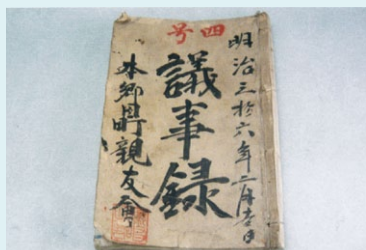 四号
明治三拾六年二月
議事録
本郷町親友会